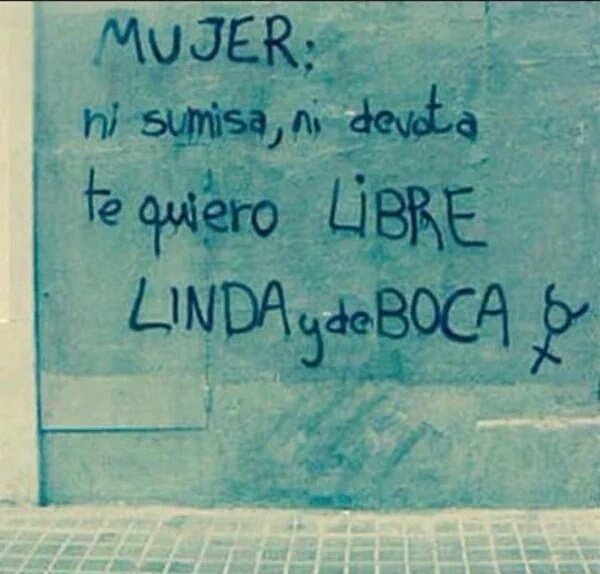 MUJER:
ni sumisa, ni devota
te quiero LIBRE
LINDA y de BOCA